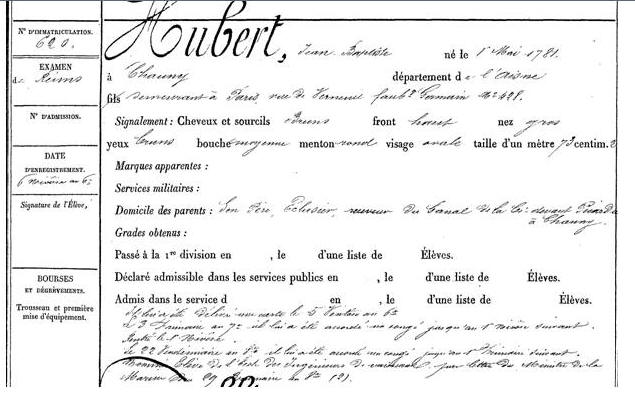 N° D'IMMATRICULATION.
620.
EXAMEN
de Reims
N° D'ADMISSION.
DATE
D'ENREGISTREMENT.
6 nivôse an 6
Signature de l'Élève,
BOURSES
ET DÉGRÈVEMENTS.
Trousseau et première
mise d'équipement.
Hubert, Jean Baptiste né le 1er Mai 1781
à Chauny département de l'Aisne
fils demeurant à Paris, rue de Verneuil faubg Germain N° 428.
Signalement : Cheveux et sourcils Bruns front haut nez gros
yeux bruns bouche moyenne menton rond visage ovale taille d'un mètre 73 centim.
Marques apparentes :
Services militaires :
Domicile des parents : Son Père, Eclusier, receveur du Canal de la Ci-devant
à Chauny.
Grades obtenus :
Passé à la 1re division en , le d'une liste de Élèves.
Déclaré admissible dans les services publics en , le d'une liste de Élèves.
Admis dans le service d en , le d'une liste de Élèves.
Il lui a été délivré une carte le 5 Ventôse an 6e
Le 3 frimaire an 7e il lui a été accordé un congé jusqu'au 1er nivôse suivant.
Rentré le 1er Nivôse.
Le 22 Vendémiaire an 8e il lui a été accordé un congé jusqu'au 1er frimaire suivant.
Nommé Elève de l'Ecole des Ingénieurs de vaisseaux par lettre du Ministre de la
Marine du 29 an 8e